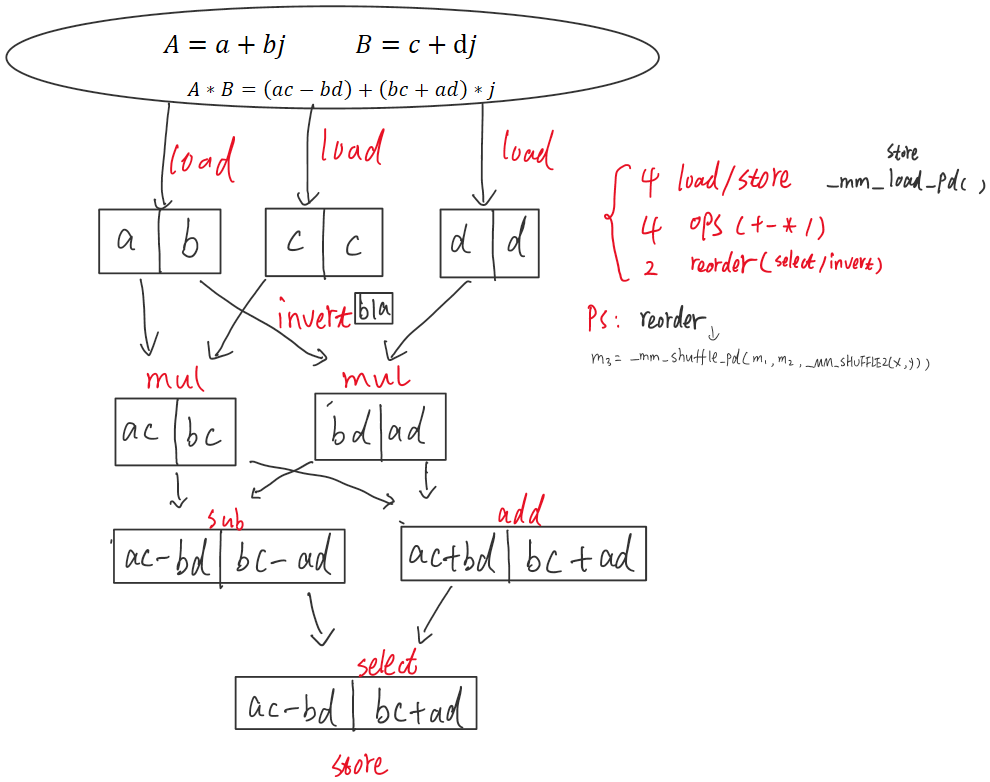 A = a + bj B = c + dj
A * B = (ac − bd) + (bc + ad) * j
load load load
a b c c d d
invert b|a
mul mul
ac bc bd ad
sub add
ac-bd bc-ad ac+bd bc+ad
select
ac-bd bc+ad
store
store
4 load/store _mm_load_pd( ,
4 ops (+-*/)
2 reorder(select/invert)
Ps: reorder
m3 = _mm_shuffle_pd(m1, m2, _MM_SHUFFLE2(x,y))